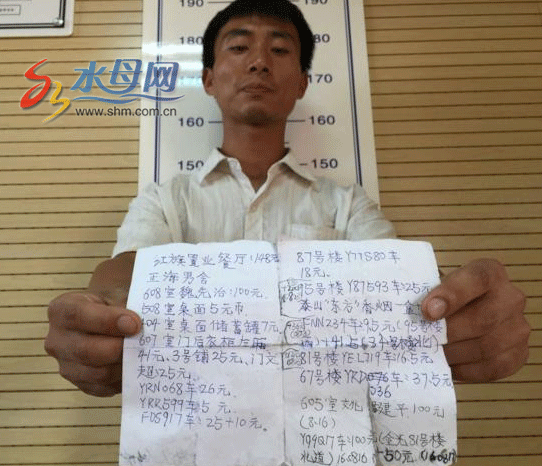 水母网
www.shm.com.cn
190
180
170
170
160
160
150
150
江族置业餐厅:148元
王海男舍
608室魏先治:100元.
508室桌面5元币
404室桌面储蓄罐7元
607室门后衣柜左屉
41元,3号铺25元,门文
超:25元.
YRN068车:26元.
YRR599车5元.
FDS917车:25+10元.
87号楼Y77S80车
18元.
15号楼Y87S93车:25元
泰山"东岳"香烟一盒
FNN234车95元(95号楼
81号楼YEL719车16.5元.
67号楼YRD 车:37.5元
036
605室文化 建平100元
(8.16)
YQ9Q17车:100元(金光81号楼
北道)
50元.